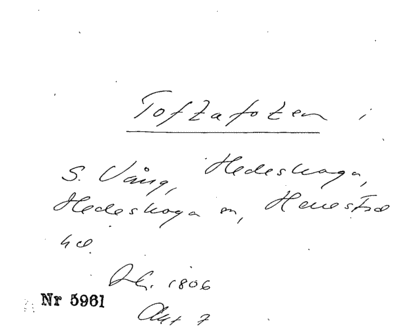 Toftafoten i
S. Vång, Hedeskoga,
Hedeskoga sn, Herrestad
hd.
1806
Nr 5961
Akt 7